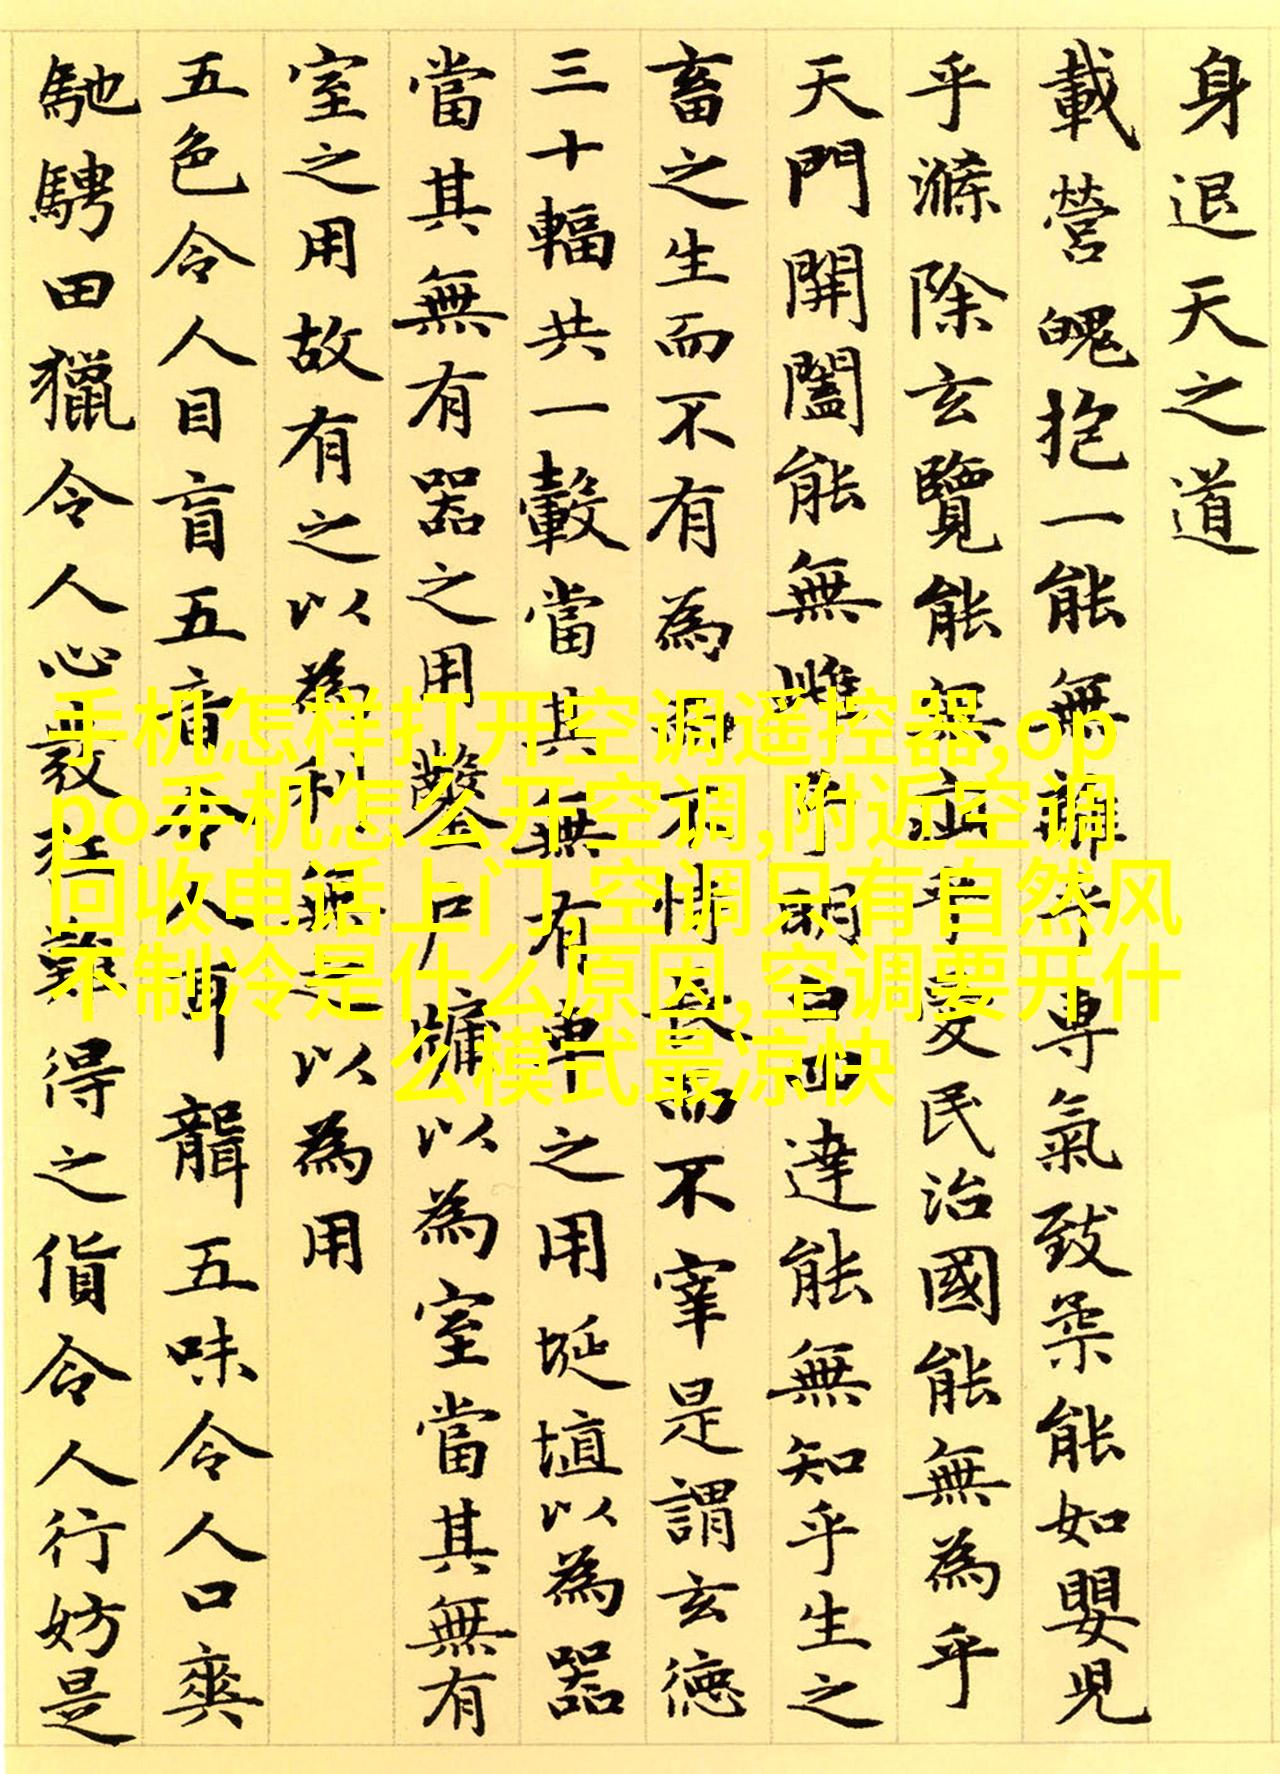 身退天之道
載營魄抱一能無離乎專氣致柔能如嬰兒
乎滌除玄覽能無疵乎愛民治國能無為乎
天門開闔能無雌乎明白四達能無知乎生之
畜之生而不有為而不恃長而不宰是謂玄德
三十輻共一轂當其無有車之用埏埴以為器
當其無有器之用鑿戶牖以為室當其無有
室之用故有之以為利無之以為用
五色令人目盲五音令人耳聾五味令人口爽
馳騁田獵令人心發狂難得之貨令人行妨是
手机怎样打开空调遥控器,op
po手机怎么开空调,附近空调
回收电话上门,空调只有自然风
不制冷是什么原因,空调要开什
么模式最凉快